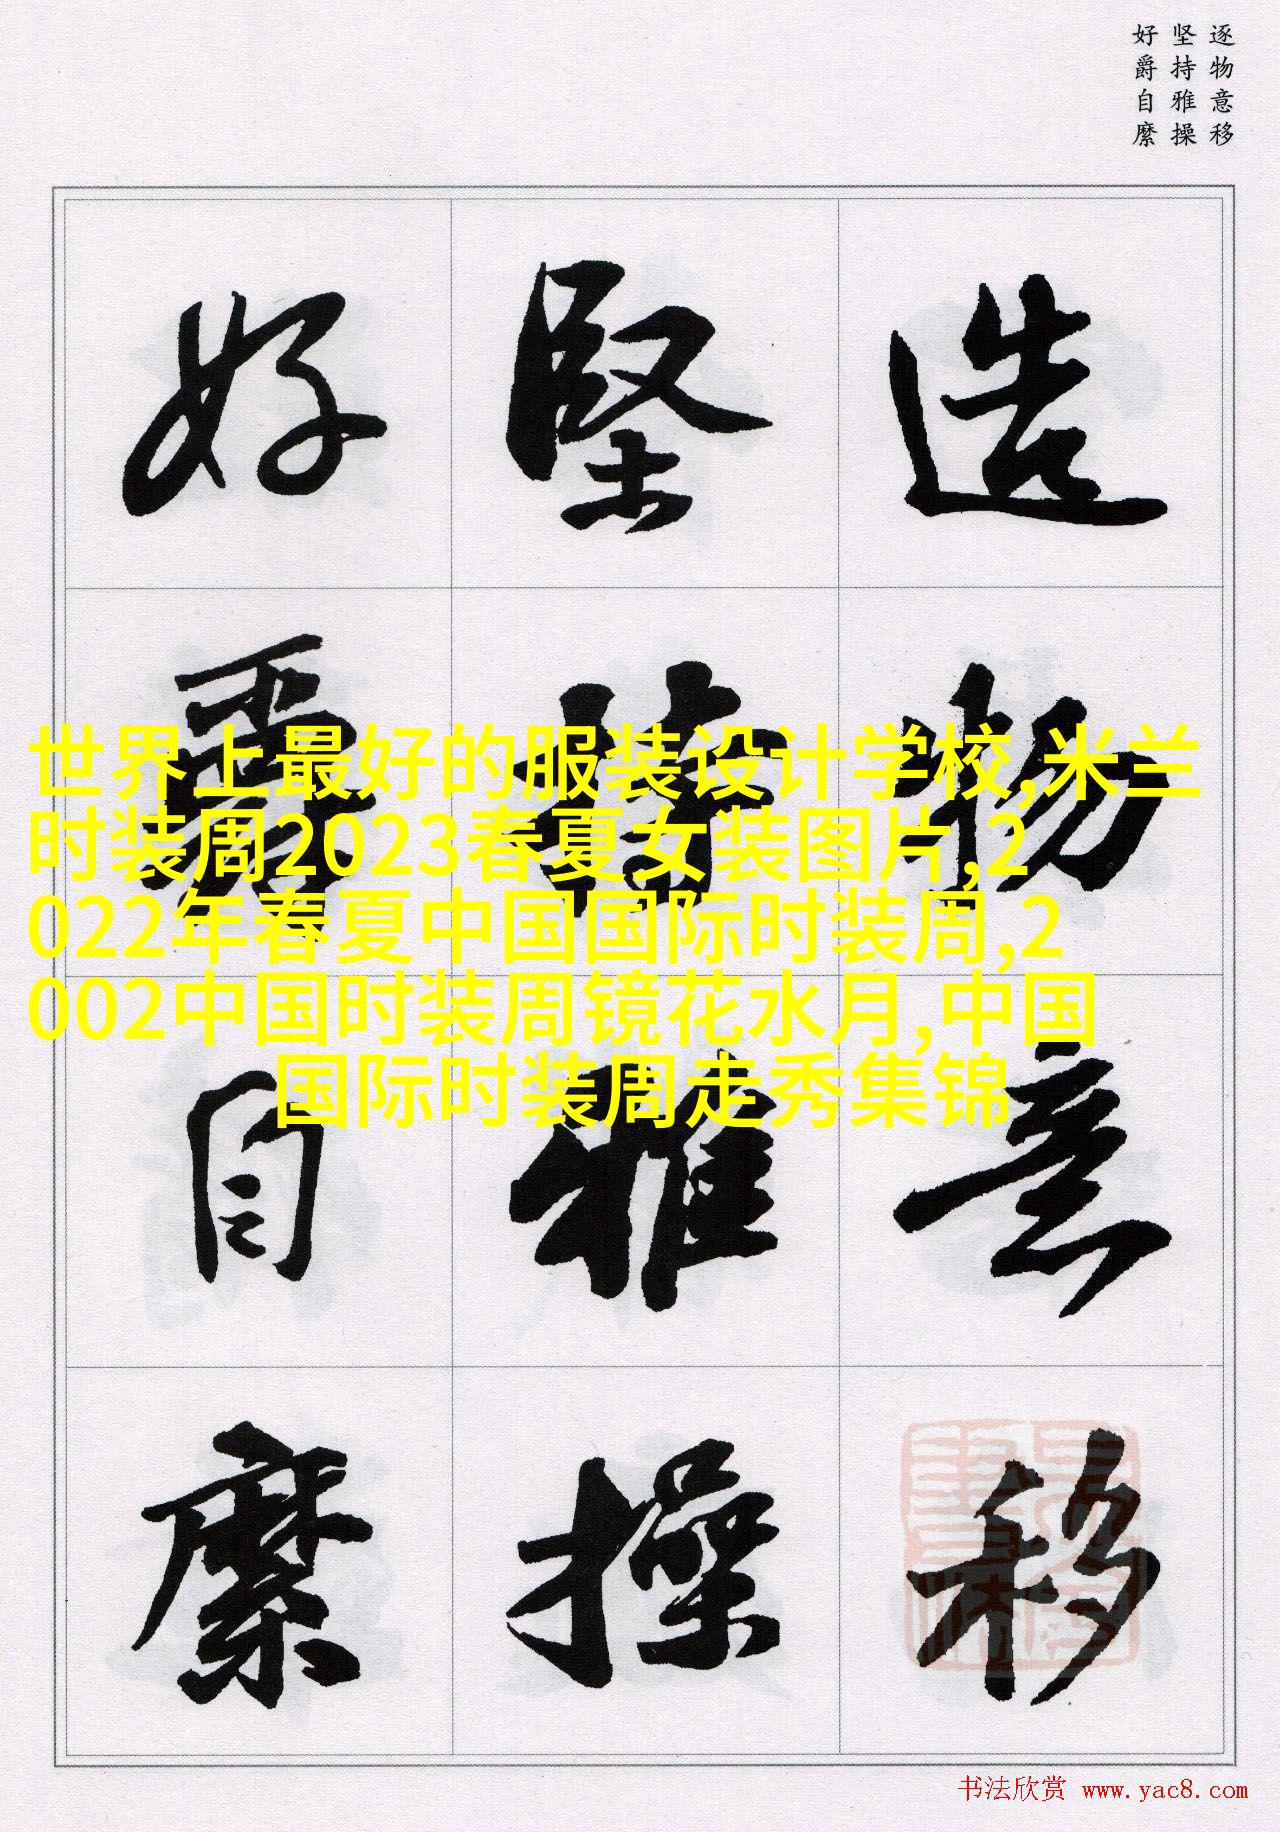 逐物意移
坚持雅操
好爵自縻
造物意移
堅持雅操
好爵自縻
世界上最好的服装设计学校,米兰
时装周2023春夏女装图片,2
022年春夏中国国际时装周,2
002中国时装周镜花水月,中国
国际时装周走秀集锦
书法欣赏 www.yac8.com